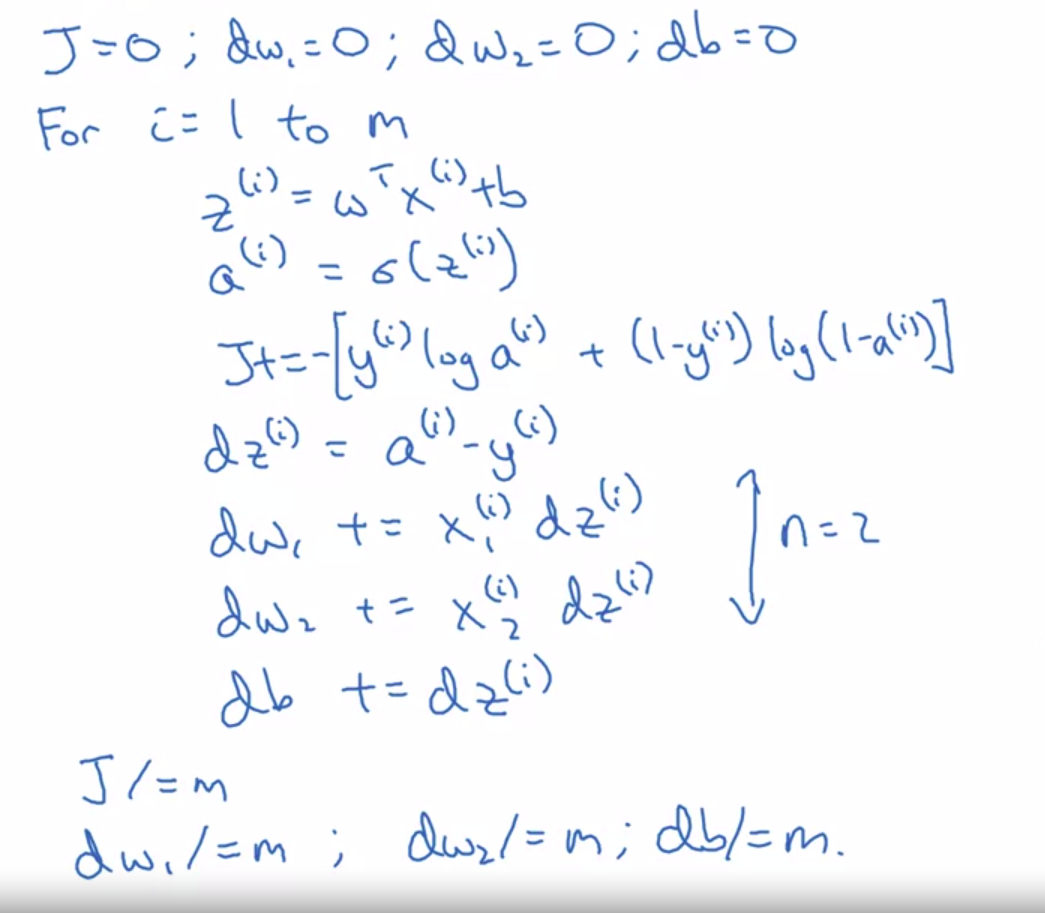 J=0 ; dw₁=0 ; dw₂=0 ; db=0
For i= 1 to m
z⁽ⁱ⁾ = wᵀx⁽ⁱ⁾+b
a⁽ⁱ⁾ = σ(z⁽ⁱ⁾)
J+=-[y⁽ⁱ⁾ log a⁽ⁱ⁾ + (1-y⁽ⁱ⁾) log(1-a⁽ⁱ⁾)]
dz⁽ⁱ⁾ = a⁽ⁱ⁾-y⁽ⁱ⁾
dw₁ += x₁⁽ⁱ⁾ dz⁽ⁱ⁾
dw₂ += x₂⁽ⁱ⁾ dz⁽ⁱ⁾
n=2
db += dz⁽ⁱ⁾
J/=m
dw₁/=m ; dw₂/=m ; db/=m.